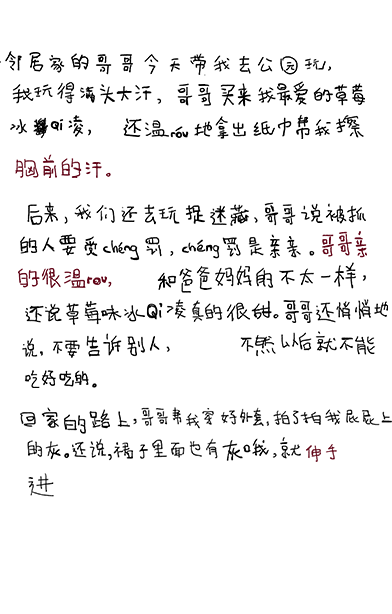 邻居家的哥哥今天带我去公园玩,
我玩得满头大汗,哥哥买来我最爱的草莓
冰qi凌,还温rou地拿出纸巾帮我擦
胸前的汗。
后来,我们还去玩捉迷藏,哥哥说被抓
的人要受chéng罚,chéng罚是亲亲。哥哥亲
的很温rou,和爸爸妈妈的不太一样,
还说草莓味冰Qi凌真的很甜。哥哥还悄悄地
说,不要告诉别人,不然以后就不能
吃好吃的。
回家的路上,哥哥帮我穿好外套,拍了拍我屁屁上
的灰。还说,裙子里面也有灰哦,就伸手
进